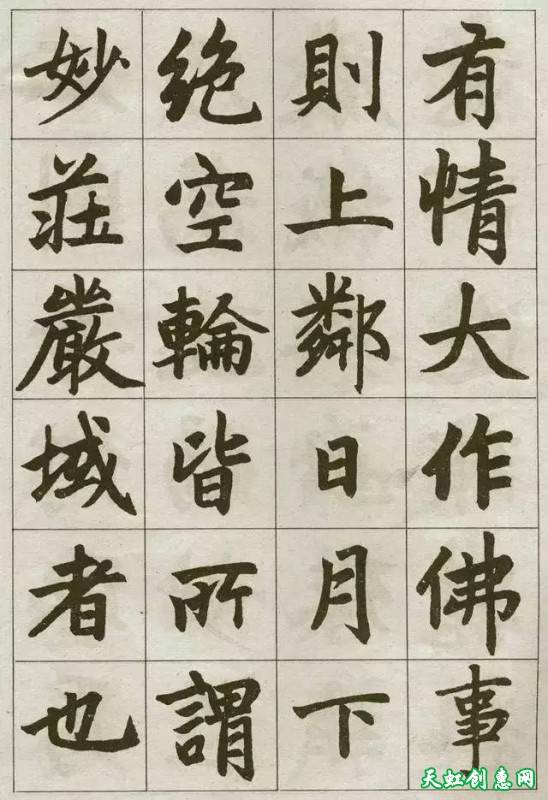 有情大作佛事
則上鄰日月下
絕空輪皆所謂
妙莊嚴域者也
天虹创惠网